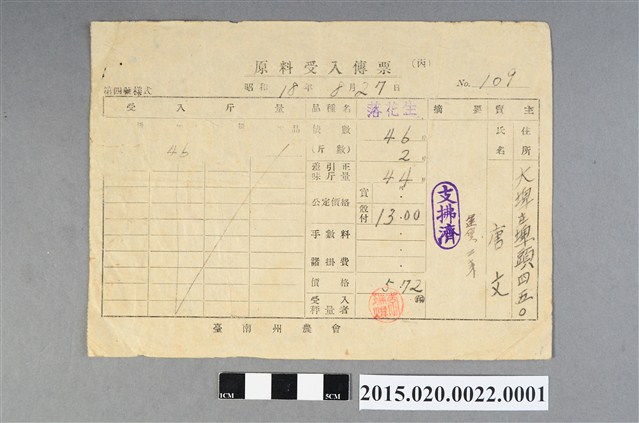 原料受入傳票 (丙)
第四號樣式
昭和 18 年 8 月 27 日
No. 109
受入斤量
品種名
落花生
摘要
賣主
住所
氏名
46
(斤數)
46
2
正味斤量
44
公定價格
13.00
手數料
諸掛費
價格
5.72
受入
秤量者
支拂濟
大埤庄埤頭四五〇
唐文
臺南州農會
1CM
5CM
2015.020.0022.0001